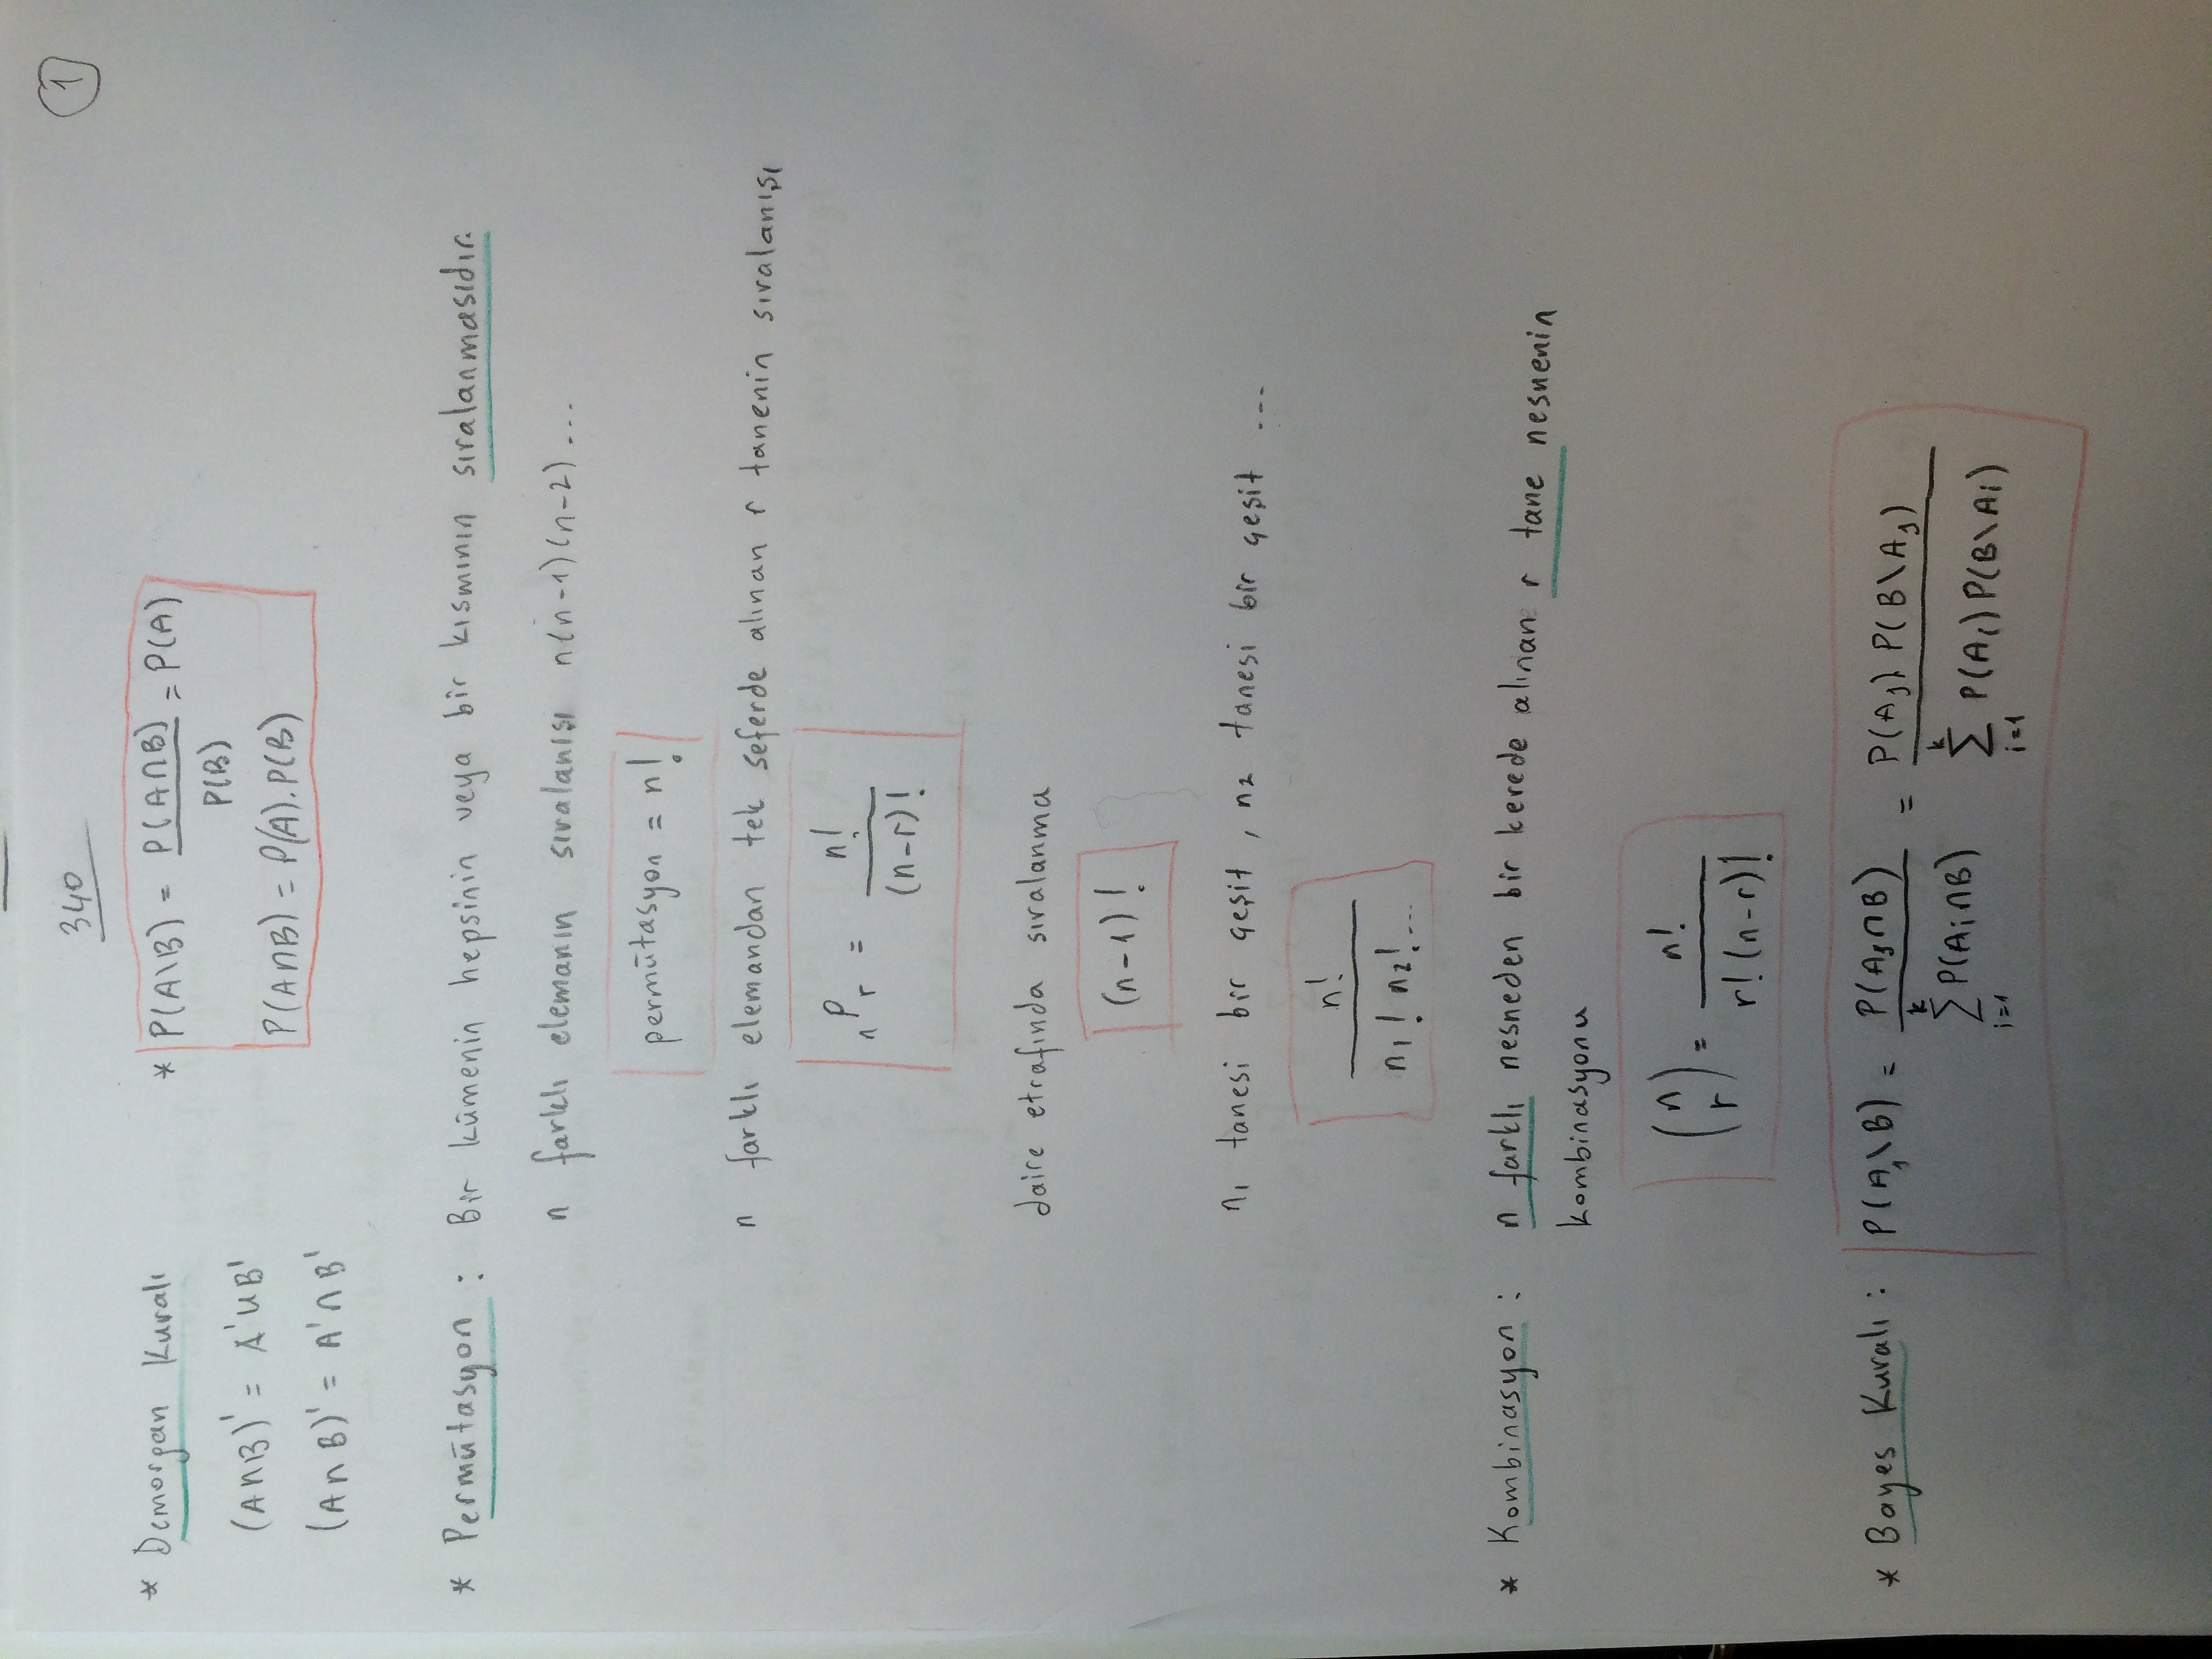 340
1
* Demorgan Kuralı
(A∩B)' = A'∪B'
(A∩B)' = A'∩B'
* P(A\B) = P(A∩B) / P(B) = P(A)
P(A∩B) = P(A).P(B)
* Permütasyon : Bir kümenin hepsinin veya bir kısmının sıralanmasıdır.
n farklı elemanın sıralanışı n(n-1)(n-2)...
permütasyon = n!
n farklı elemandan tek seferde alınan r tanenin sıralanışı
nPr = n! / (n-r)!
daire etrafında sıralanma
(n-1)!
n1 tanesi bir çeşit, n2 tanesi bir çeşit ...
n! / n1! n2!...
* Kombinasyon : n farklı nesneden bir kerede alınan r tane nesnenin
kombinasyonu
(n r) = n! / r!(n-r)!
* Bayes Kuralı : P(Aj\B) = P(Aj∩B) / ∑ k i=1 P(Ai∩B) = P(Aj) P(B\Aj) / ∑ k i=1 P(Ai) P(B\Ai)